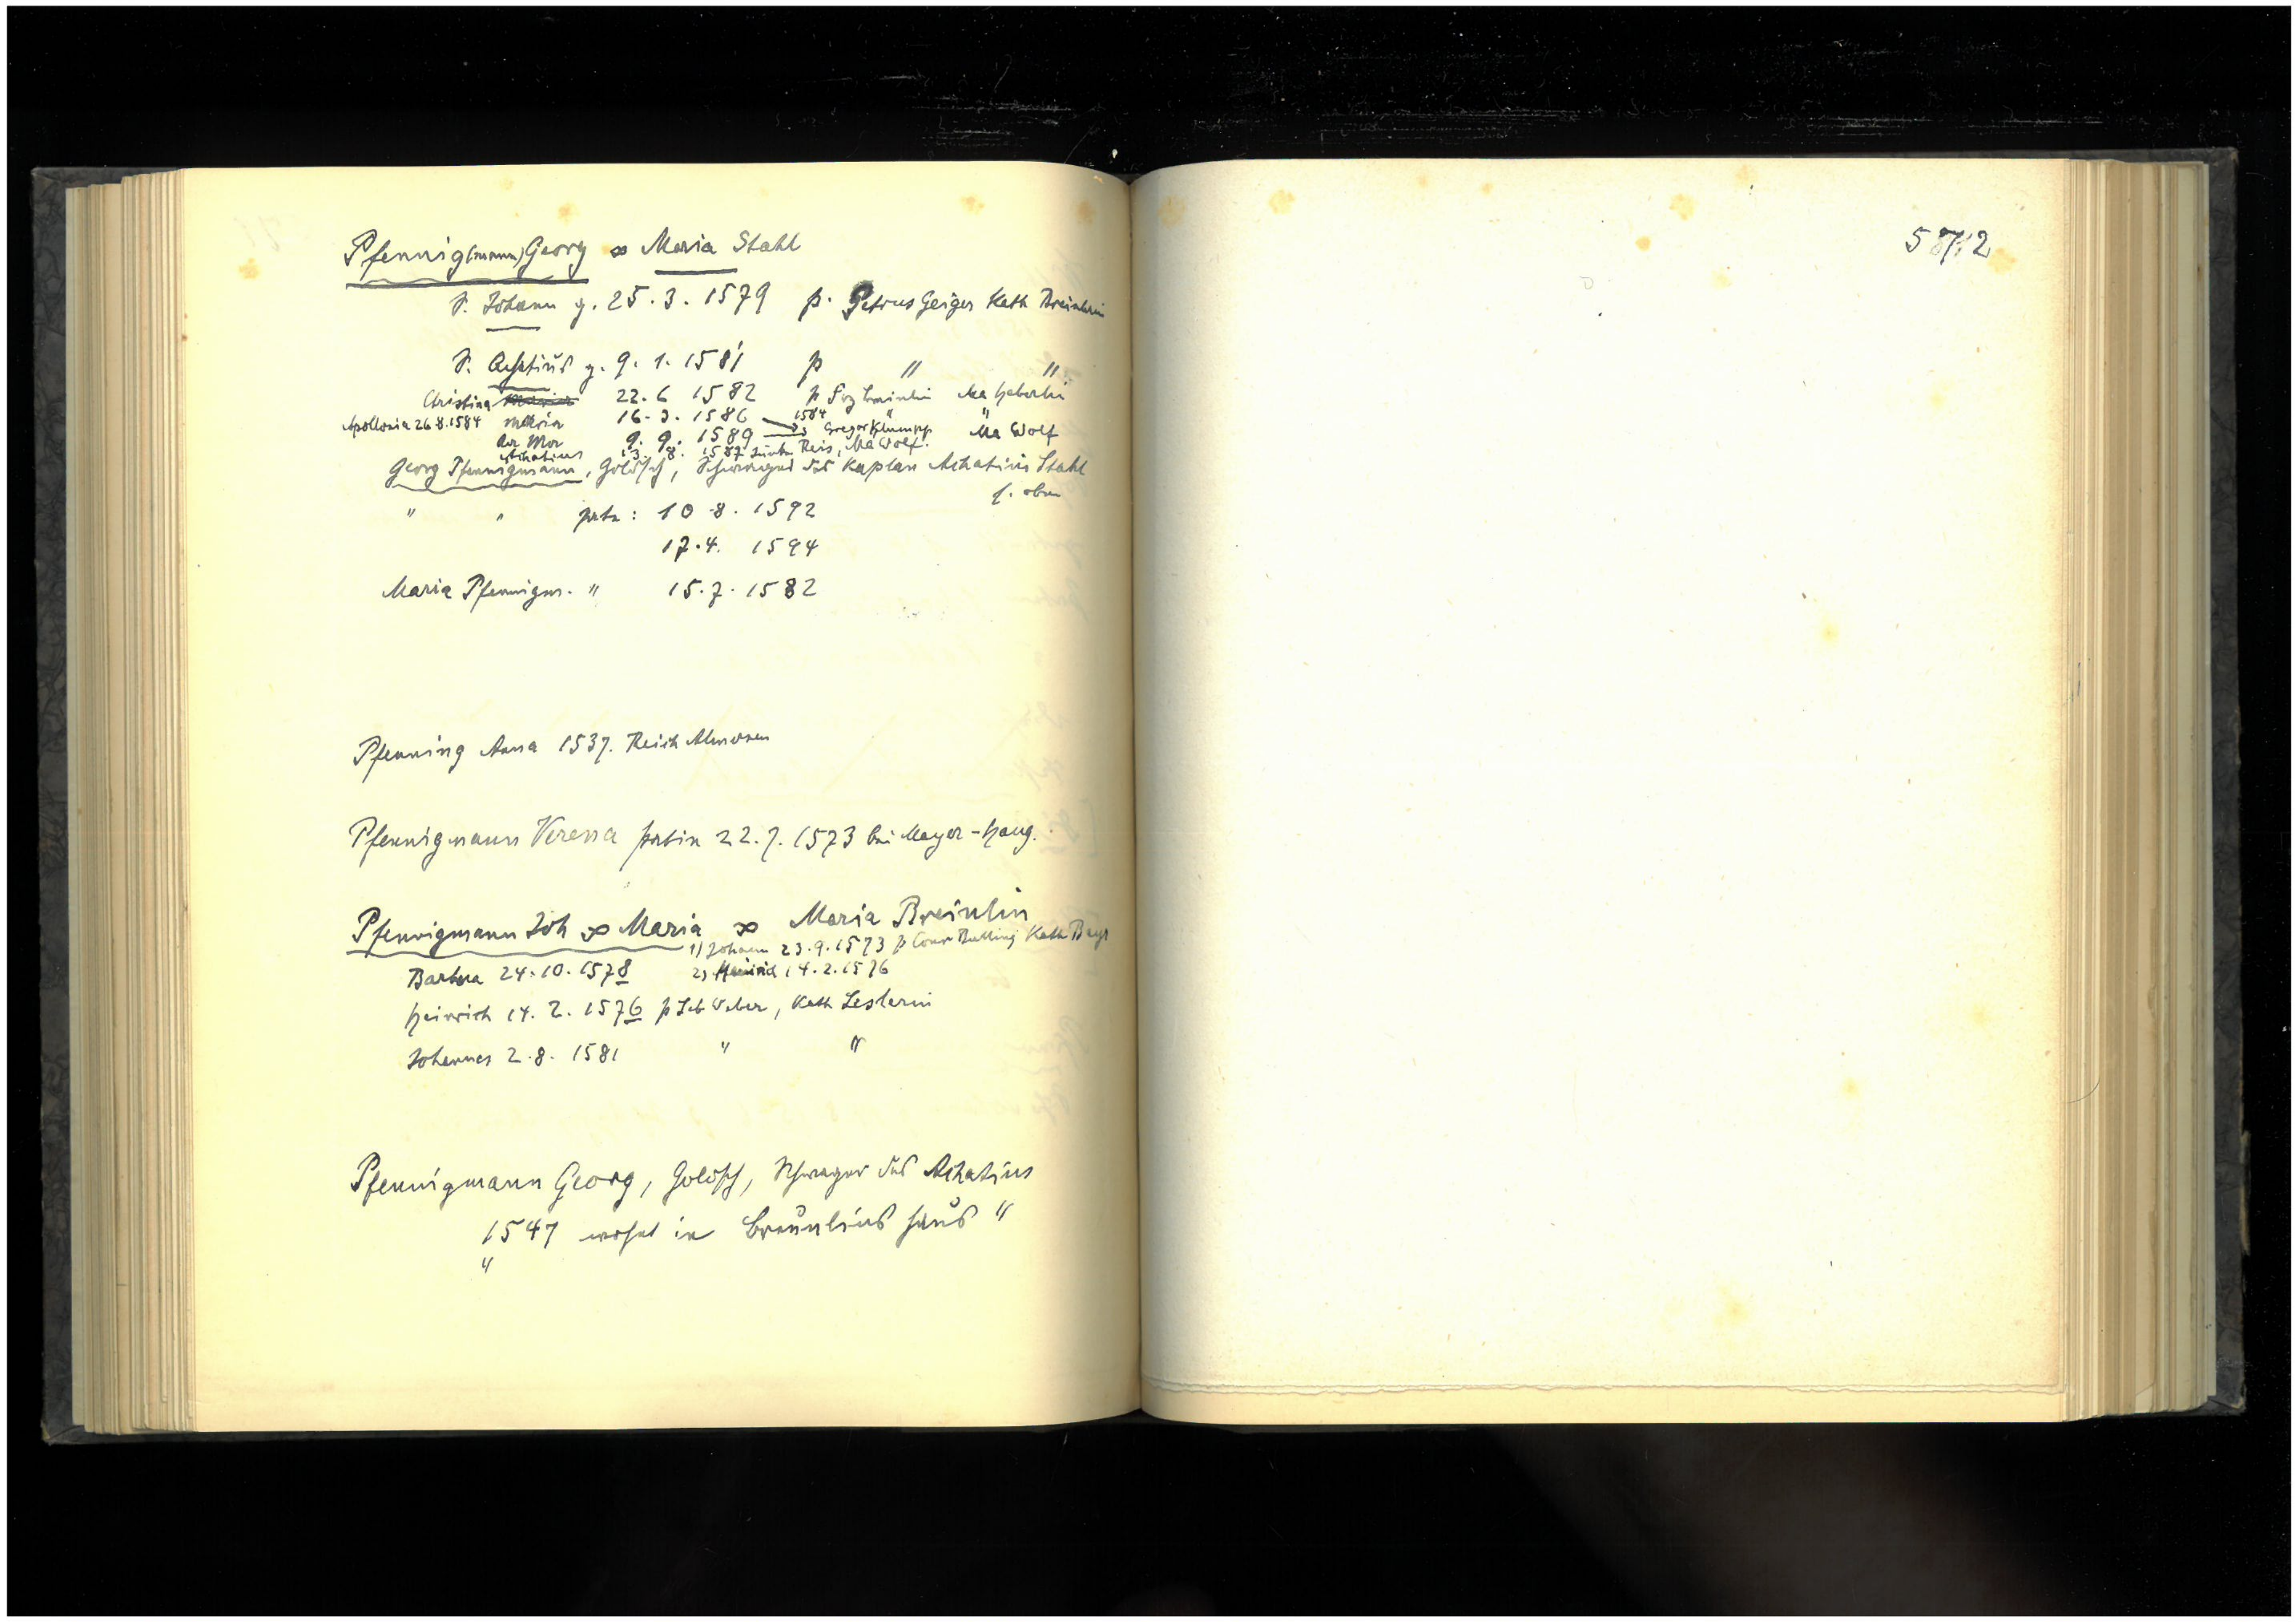 Pfennig(mann) Georg ∞ Maria Stahl
S. Johann g. 25.3.1579 p. Petrus Geiger Kath Breinlin
S. Achatius g. 9.1.1581 p " "
Christina 22.6 1582 p Ma Heberlin
Apollonia 26.8.1584 Maria 16.3.1586 1584 " "
9.9.1589 Gregor Klumpp Ma Wolf
Achatius 13.8.1587 Reis, Ma Wolf.
Georg Pfennigmann, Goldsch, Schwager des Kaplan Achatius Stahl
s. oben
" " patr: 10.8.1592
17.4. 1594
Maria Pfennigm. " 15.7.1582
Pfenning Anna 1537. Reich Almosen
Pfennigmann Verena patrin 22.7.1573 bei Mayer-Haug.
Pfennigmann Joh ∞ Maria ∞ Maria Breinlin
1) Johann 23.9.1573 p Kath
Barbra 24.10.1578 2) 14.2.1576
Heinrich 14.2.1576 p Seb Weber, Kath Leslerin
Johannes 2.8.1581 " "
Pfennigmann Georg, Goldsch, Schwager des Achatius
1547 wohnt in Breunlins Haus "
"
5